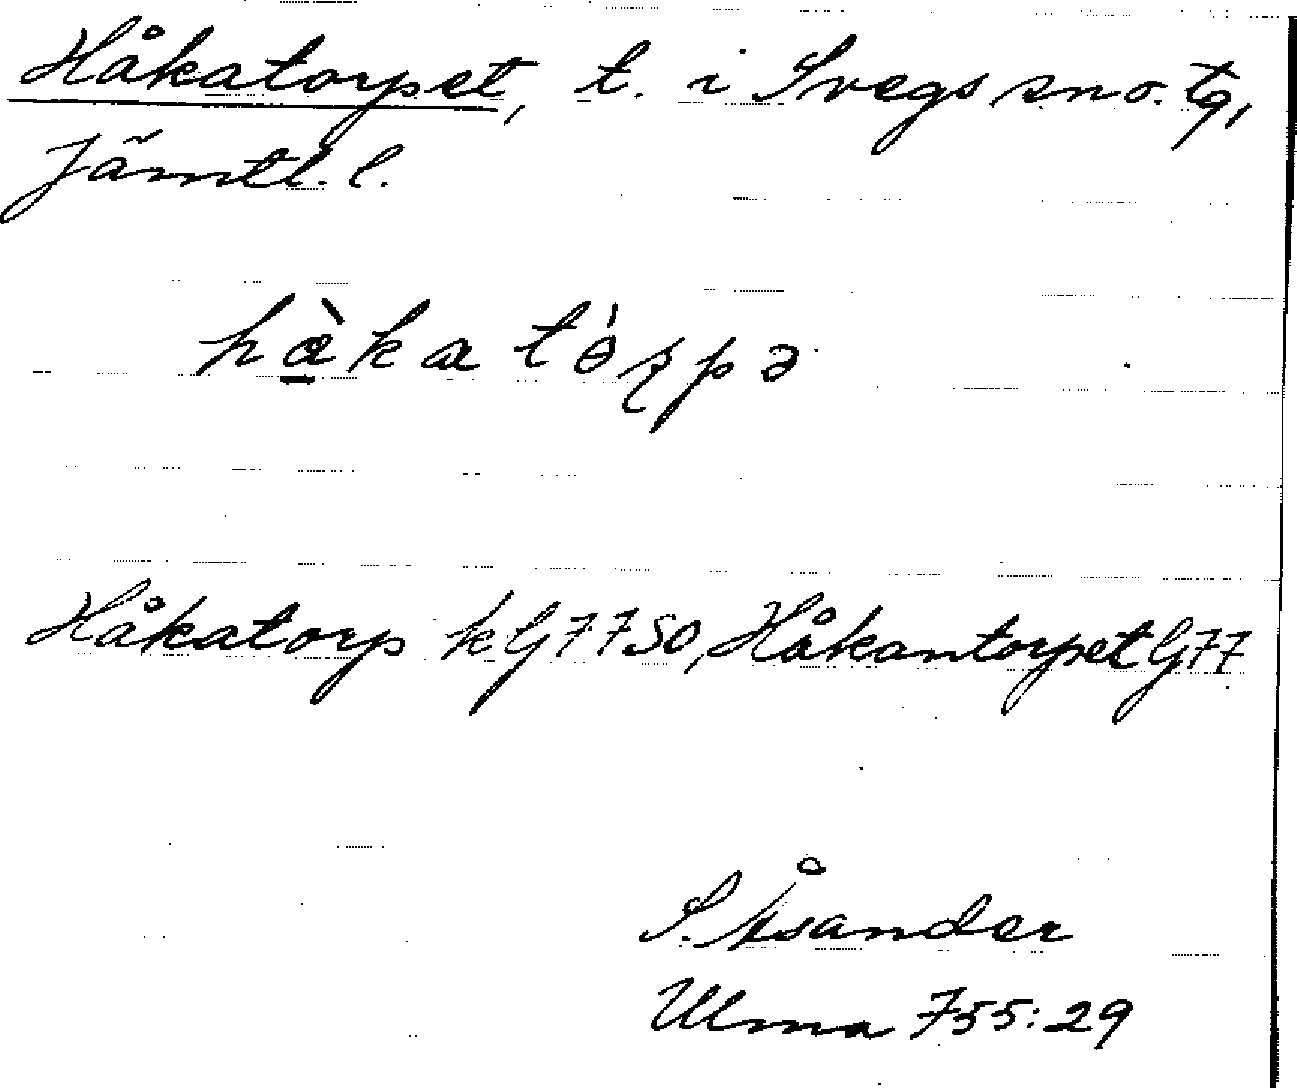 Håkatorpet, t. i Svegs sn o. tg,
Jämtl. l.
Håkatorp kG7750, Håkantorpet G77
S. Åsander
Ulma 755:29